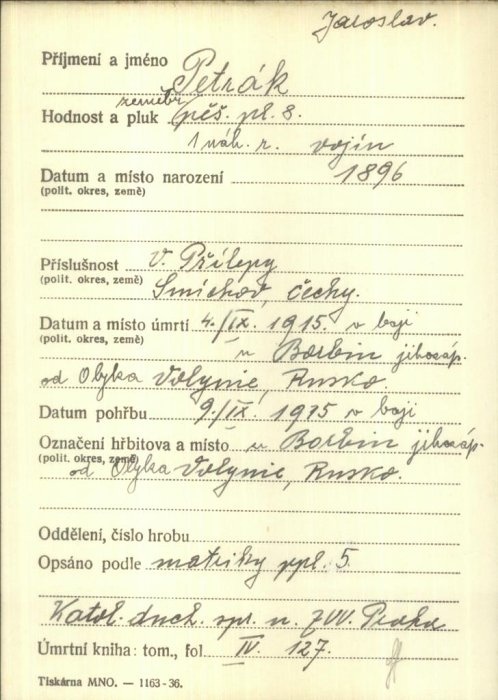 Jaroslav.
Příjmení a jméno Petrák
zeměbr.
Hodnost a pluk pěš. pl. 8.
1 náh. r. vojín
Datum a místo narození 1896
(polit. okres, země)
Příslušnost V. Přílepy
(polit. okres, země) Smíchov, Čechy.
Datum a místo úmrtí 4./IX. 1915. v boji
(polit. okres, země) u Borbin jihozáp.
od Olyka Volynie, Rusko.
Datum pohřbu 9./IX. 1915 v boji
Označení hřbitova a místo u Borbin jihozáp.
(polit. okres, země) od Olyka Volynie, Rusko.
Oddělení, číslo hrobu
Opsáno podle matriky ppl. 5
Katol. duch. spr. u ZVV. Praha
Úmrtní kniha: tom., fol. IV. 127.
Tiskárna MNO. — 1163-36.